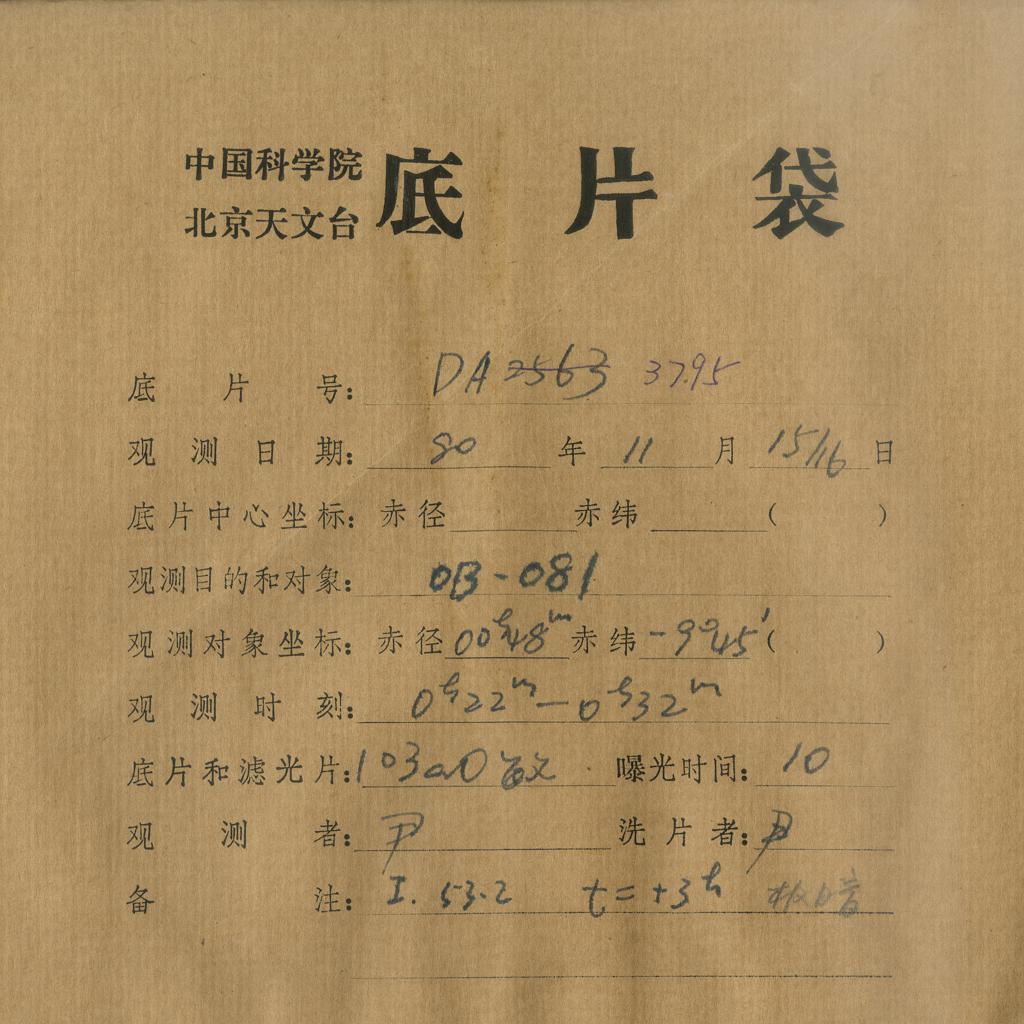 中国科学院
北京天文台
底片袋
底片号: DA 2563 3795
观测日期: 80 年 11 月 15/16 日
底片中心坐标: 赤径 赤纬 ( )
观测目的和对象: OB-081
观测对象坐标: 赤径 00h48m 赤纬 -9°45′ ( )
观测时刻: 0h22m—0h32m
底片和滤光片: 103aO 敏 曝光时间: 10
观测者: 尹 洗片者: 尹
备注: I. 53.2 t=+3h